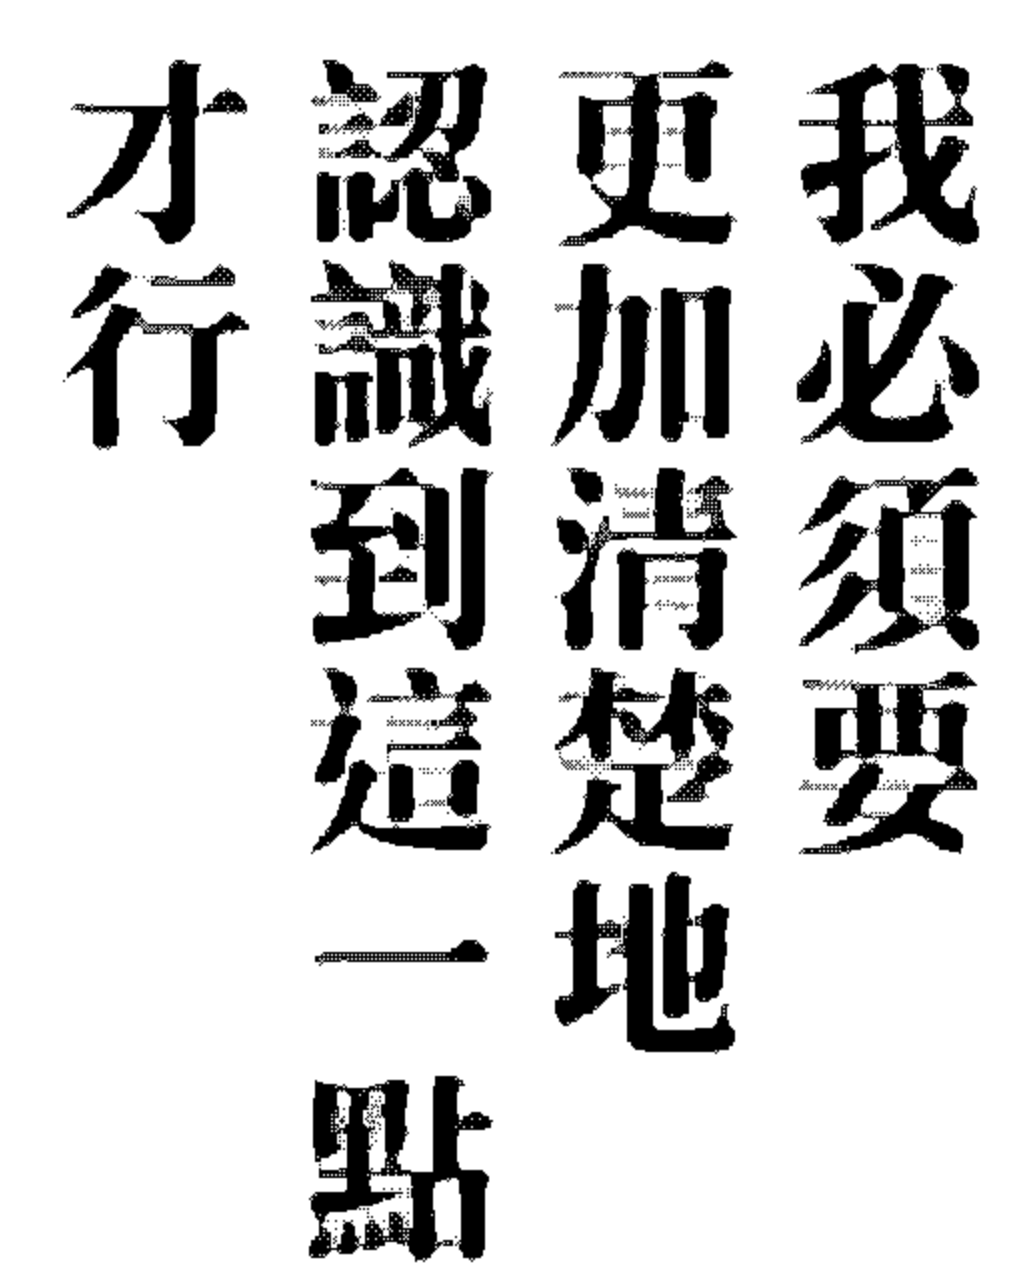 我必須要
更加清楚地
認識到這一點
才行